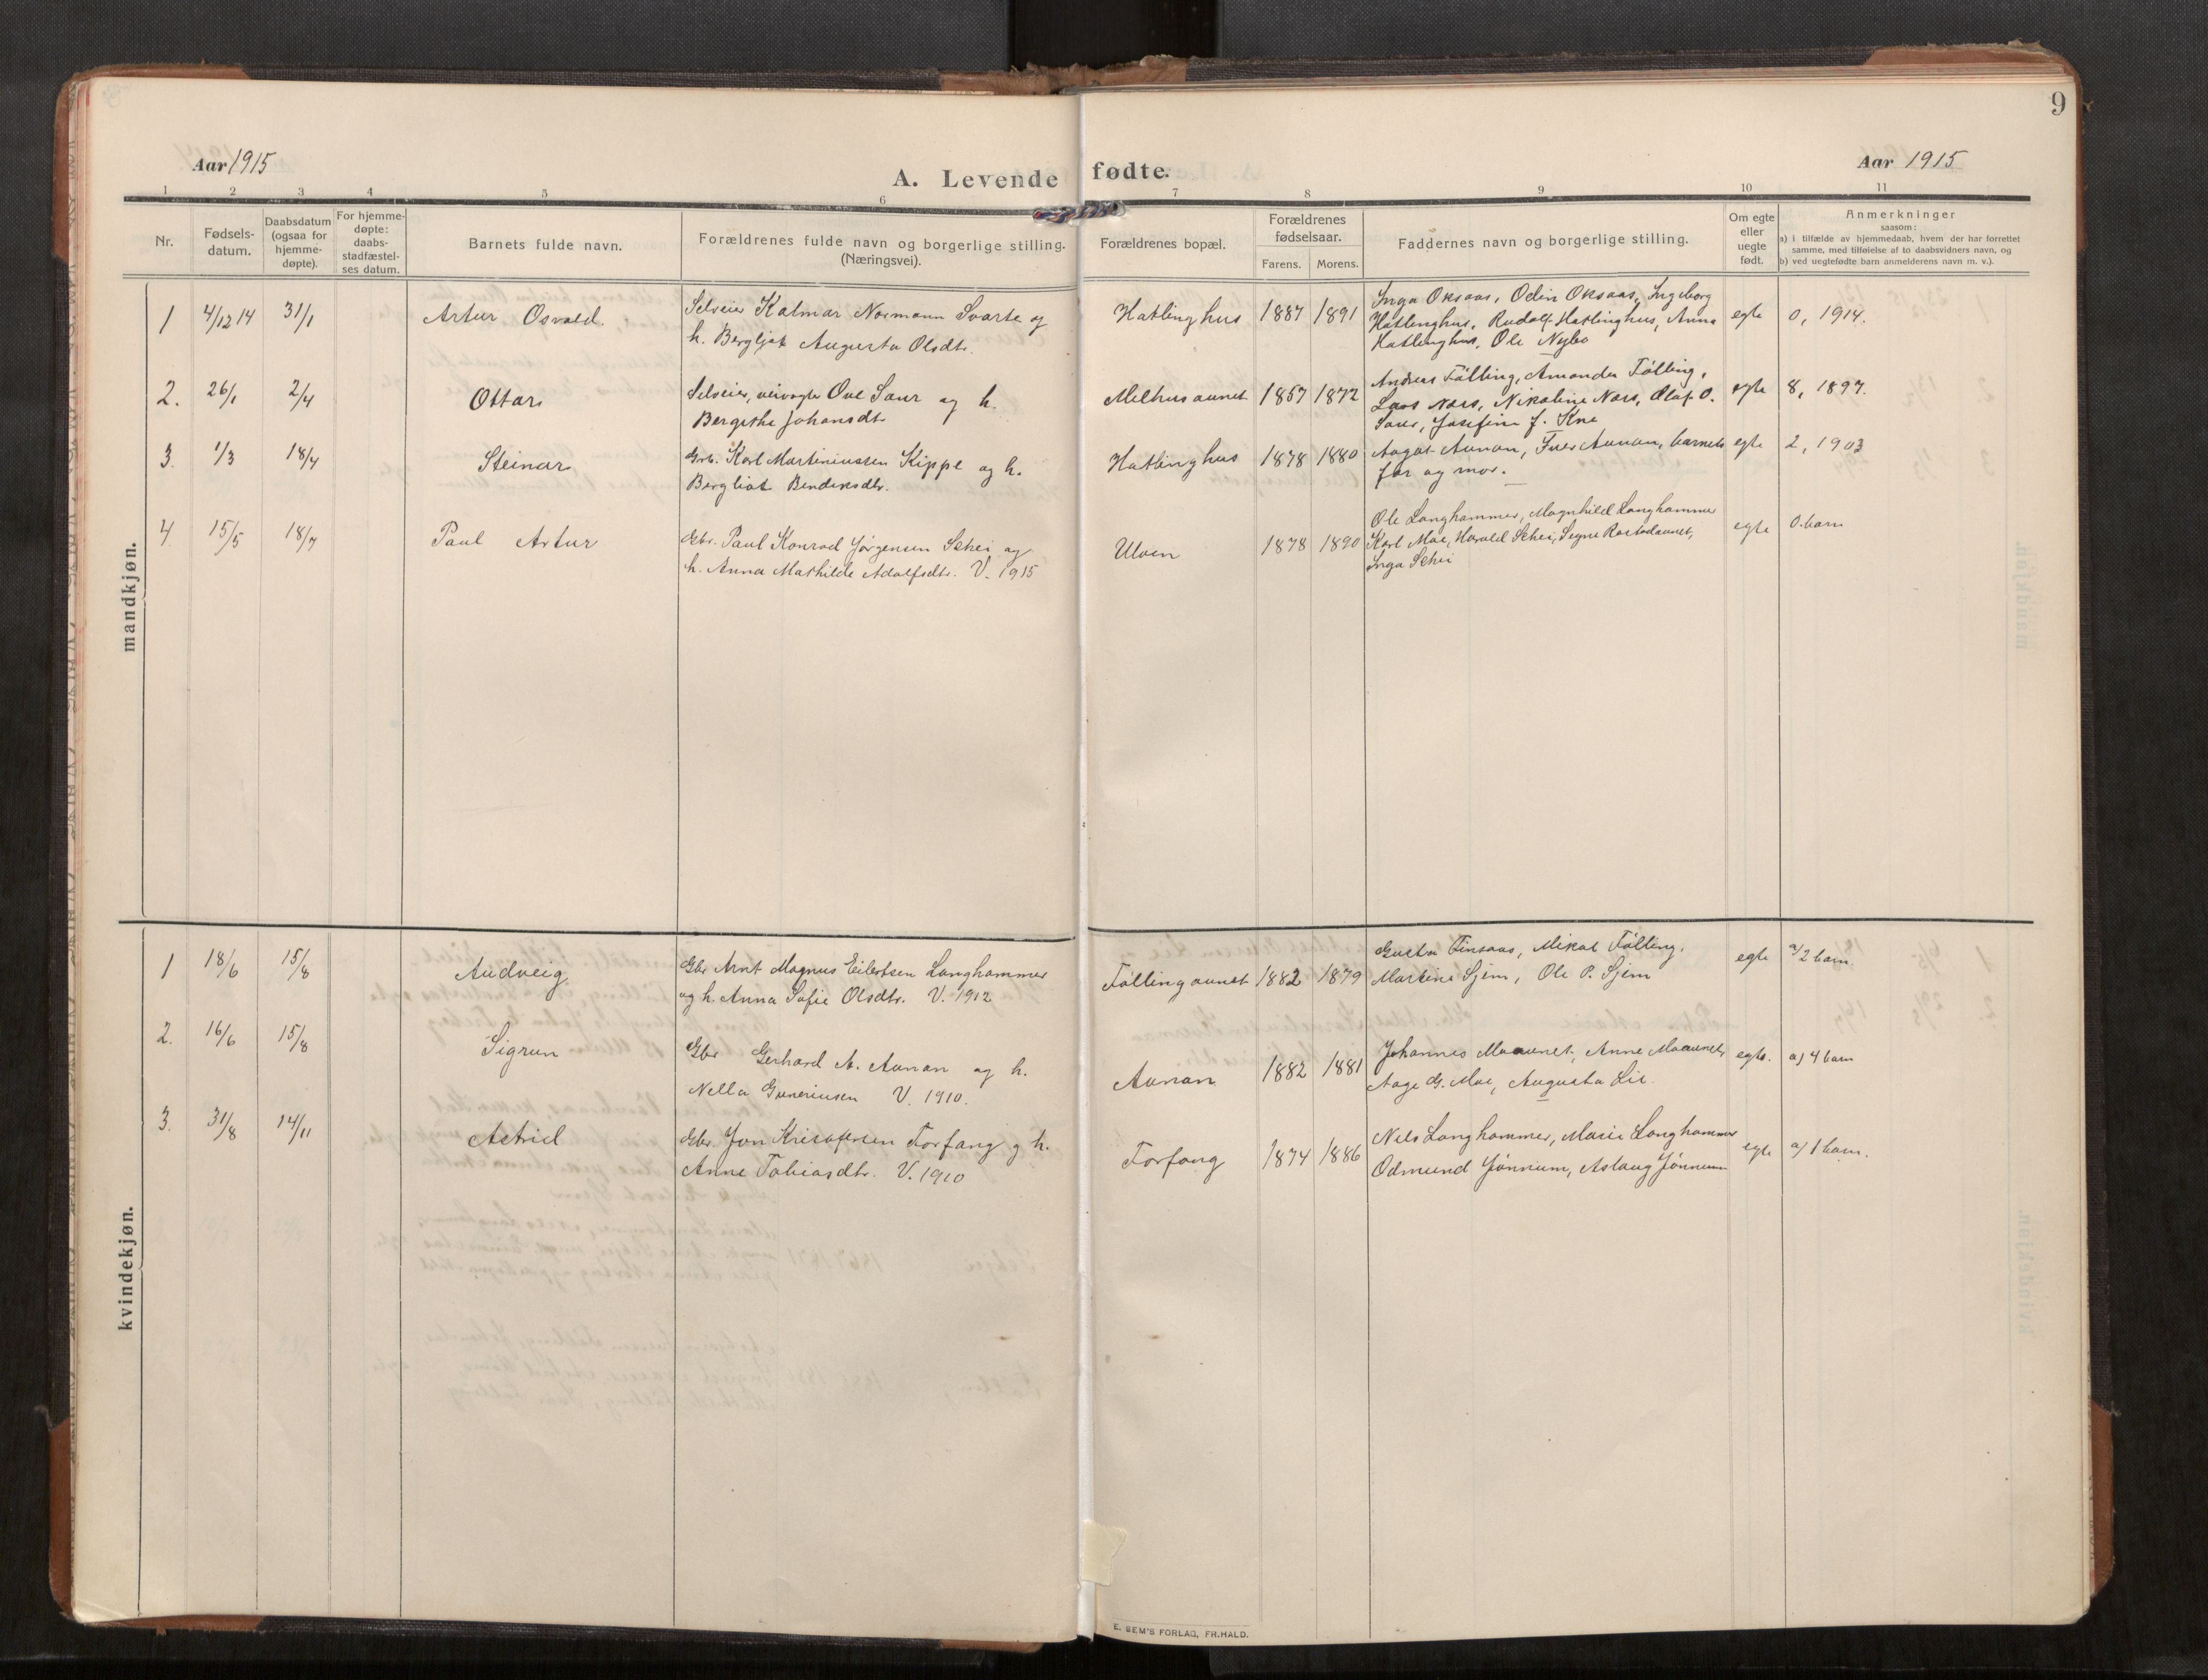 9
Aar 1915
A. Levende fødte.
Aar 1915
1 2 3 4 5 6 7 8 9 10 11
Nr.
Fødsels-
datum.
Daabsdatum
(ogsaa for
hjemme-
døpte).
For hjemme-
døpte:
daabs-
stadfæstel-
ses datum.
Barnets fulde navn.
Forældrenes fulde navn og borgerlige stilling.
(Næringsvei).
Forældrenes bopæl.
Forældrenes
fødselsaar.
Farens. Morens.
Faddernes navn og borgerlige stilling.
Om egte
eller
uegte
født.
Anmerkninger
saasom:
a) i tilfælde av hjemmedaab, hvem der har forrettet
samme, med tilføielse af to daabsvidners navn, og
b) ved uegtefødte barn anmelderens navn m. v.).
mandkjøn.
1 4/12 14 31/1 Artur Osvald.
Selveier Kalmar Normann Svarte og
h. Bergljot Augusta Olsdtr.
Hatlinghus 1887 1891
Inga Oksaas, Odin Oksaas, Ingeborg
Hatlinghus, Rudolf Hatlinghus, Anna
Hatlinghus, Ole Nybo
egte 0, 1914.
2. 26/1 2/4 Ottar
Selveier, veivogte Ove Saur og h.
Bergithe Johansdtr
Melhusaunet 1857 1872
Andreas Følling, Amanda Følling,
Lars Nars, Nikoline Nars, Olaf O.
Saur, Josefine J.
egte 8, 1897.
3. 1/3 18/4 Steinar
Grb. Karl Martiniussen Kippe og h.
Bergliot Bendiksdtr.
Hatlinghus 1878 1880
Aagot Aunan, Aunan, barnets
far og mor.
egte 2, 1903
4. 15/5 18/7 Paul Artur
Gbr. Paul Konrad Jørgensen Schei og
h. Anna Mathilde Adolfsdtr. V. 1915
Ulven 1878 1890
Ole Langhammer, Magnhild Langhammer
Karl Moe, Harald Schei, Signe
Inga Schei
egte 0. barn
kvindekjøn.
1 18/6 15/8 Audveig
Gbr Arnt Magnus Eilertsen Langhammer
og h. Anna Sofie Olsdtr. V. 1912
Føllingaunet 1882 1879
Gusta Finsaas, Mikal Følling.
Martine Sjem, Ole P. Sjem
egte a/ 2 barn.
2. 16/6 15/8 Sigrun
Gbr Gerhard A. Aunan og h.
Nella Gureriusen V. 1910.
Aunan 1882 1881
Johannes Moaunet, Anne Moaunet
Aage G. Moe, Augusta Lie.
egte. a) 4 barn
3. 31/8 14/11 Astrid
Gbr. Jon Kristofersen Forfang og h.
Anne Tobiasdtr. V. 1910
Forfang 1874 1886
Nels Langhammer, Marie Langhammer
Odmund Jønnum, Aslaug Jønnum
egte a/ 1 barn.
E. SEM'S FORLAG, FR.HALD.